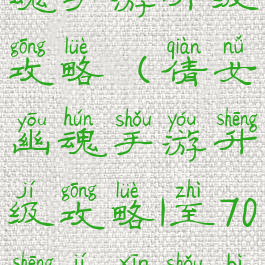 魂手游升级
gōng lüè qiàn nǚ
攻略(倩女
yōu hún shǒu yóu shēng
幽魂手游升
jí gōng lüè zhì
级攻略1至70
shēng jí xīn shǒu bì